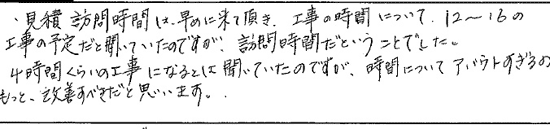 ・見積 訪問時間は、早めに来て頂き、工事の時間について、12〜16の
工事の予定だと聞いていたのですが、訪問時間だということでした。
4時間くらいの工事になるとは聞いていたのですが、時間についてアバウトすぎるの
もっと、改善すべきだと思います。